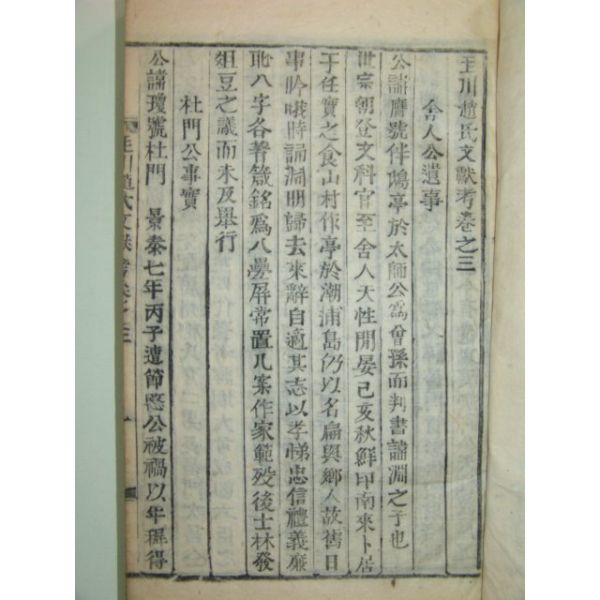 玉川趙氏文獻考卷之三
舍人公遺事
公諱膺號伴鷗亭於太師公爲曾孫而判書諱淵之子也
世宗朝登文科官至舍人天性閒晏己亥秋鮮印南來卜居
于任實之食山村作亭於潮浦島仍以名扁與鄉人故舊日
事吟哦時誦淵明歸去來辭自適其志以孝悌忠信禮義廉
耻八字各著箴銘爲八疊屏常置几案作家範歿後士林發
俎豆之議而未及擧行
杜門公事實
公諱瓊號杜門 景泰七年丙子遺節愍公被禍以年穉得
玉川趙氏文獻考卷之三 一